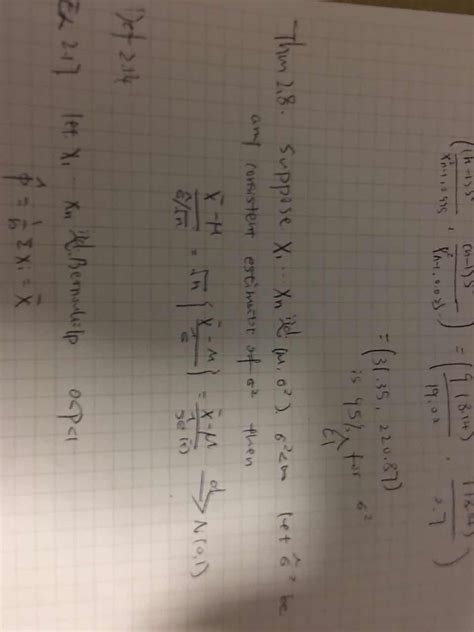 ((n-1)s² / χ²n-1,0.975 , (n-1)s² / χ²n-1,0.025) = (9(8.14) / 19.02 ,
= (31.35, 220.87)
is 95% CI for σ²
Thm 2.8. Suppose X₁ ... Xn iid (μ, σ²) σ²<∞ let σ̂² be
any consistent estimator of σ² then
X̄-μ / σ̂/√n = √n { X̄-μ / σ̂ } = X̄-μ / se(x̄) →d N(0,1)
Def 2.14
Ex 2.17 let X₁ ... Xn iid Bernoulli p 0<p<1
p̂ = 1/n Σxi = X̄